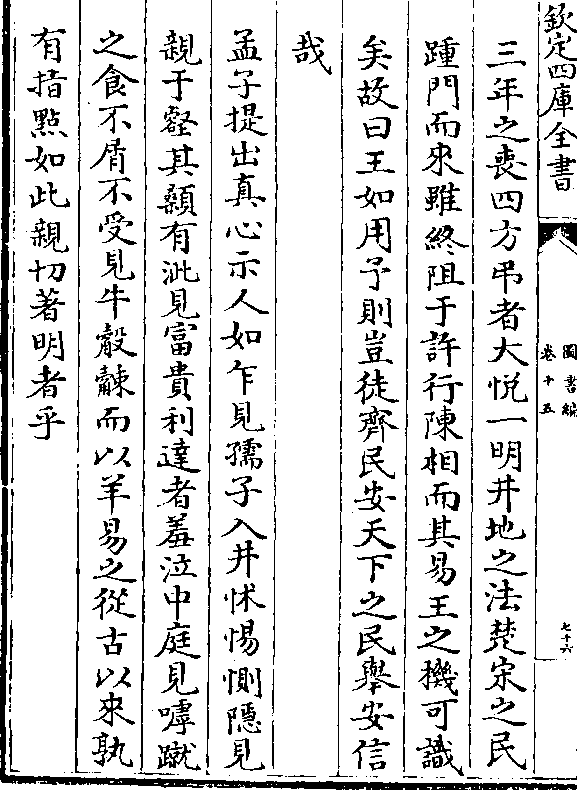 欽定四庫全書
圖書編
卷十五
七十六
三年之喪四方弔者大悅一明井地之法楚宋之民
踵門而來雖終阻于許行陳相而其易王之機可識
矣故曰王如用予則豈徒齊民安天下之民舉安信
哉
孟子提出真心示人如乍見孺子入井怵惕惻隱見
親于壑其顙有泚見富貴利達者羞泣中庭見嘑蹴
之食不屑不受見牛觳觫而以羊易之從古以來孰
有指點如此親切著明者乎